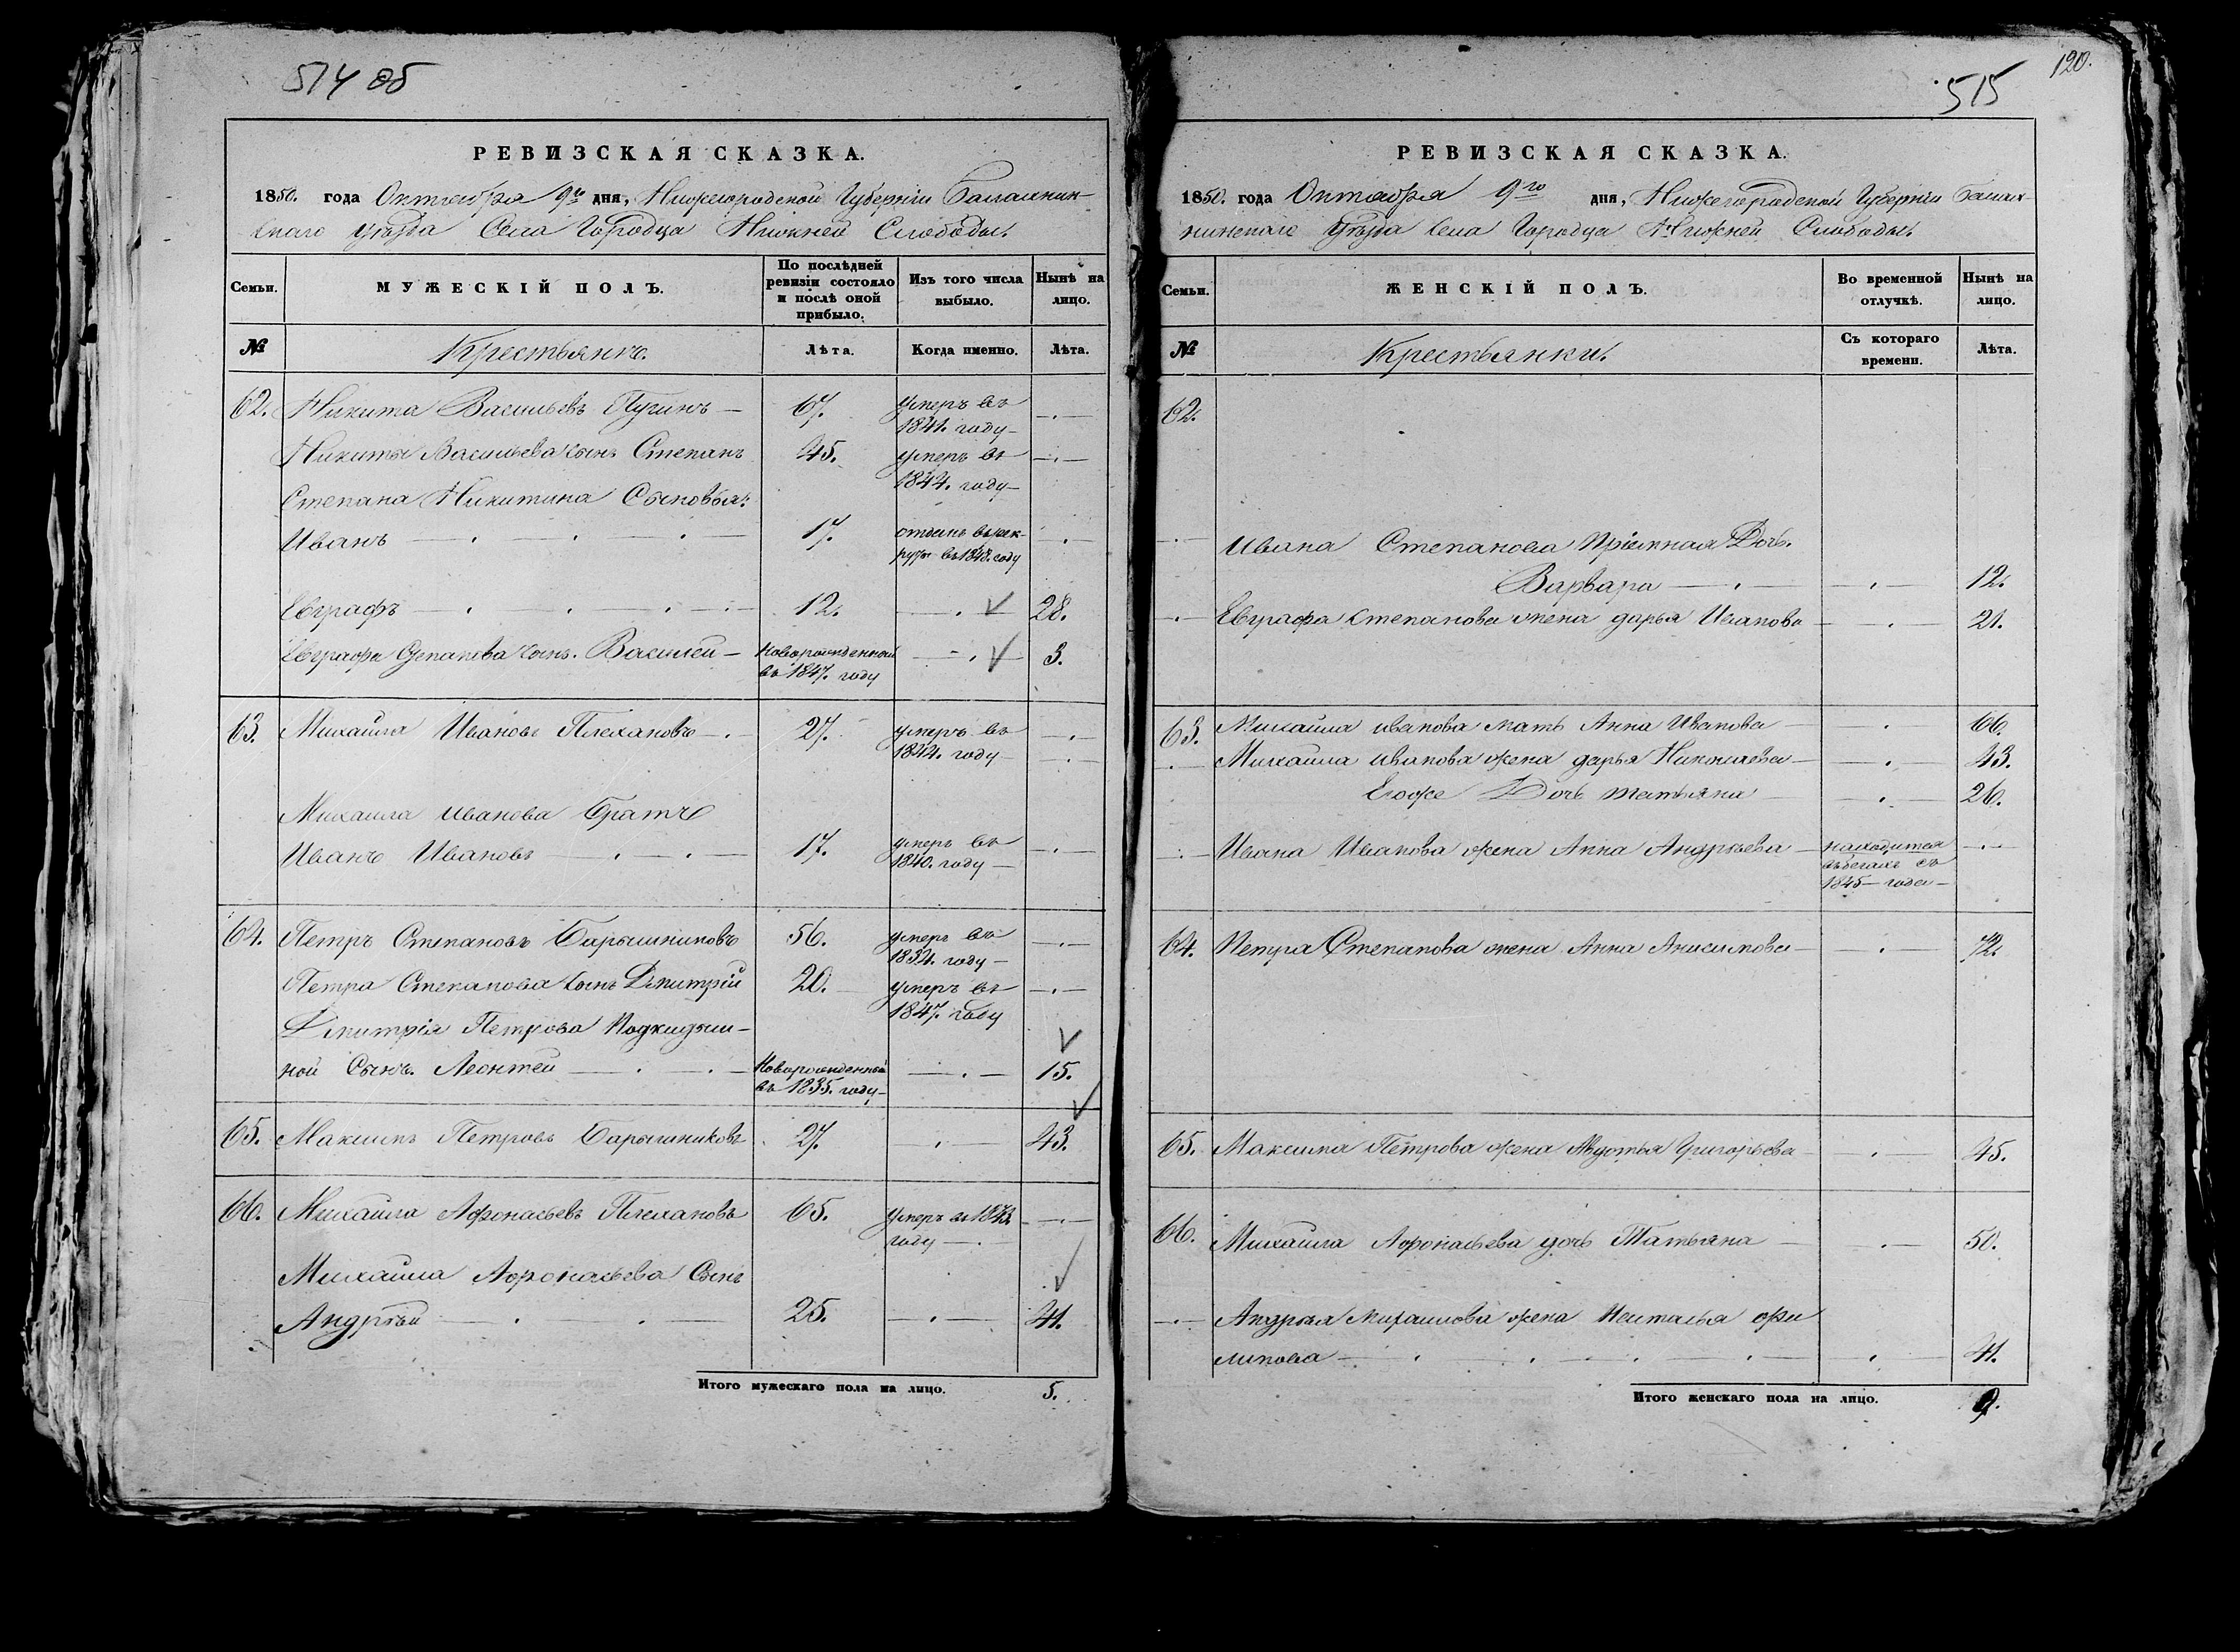 514 об
РЕВИЗСКАЯ СКАЗКА.
1850. года Октября 9го дня, Нижегородской Губернiи Балахнин-
скаго уѣзда Села Городца Нижней Слободы.
Семьи.
МУЖЕСКIЙ ПОЛЪ.
По послѣдней
ревизiи состояло
и послѣ оной
прибыло.
Изъ того числа
выбыло.
Нынѣ на
лицо.
№
Крестьянъ.
Лѣта.
Когда именно.
Лѣта.
62. Никита Васильевъ Пугинъ — 67. умеръ въ
1841. году —
Никиты Васильева сынъ Степанъ 45. умеръ въ
1844. году —
Степана Никитина Сыновья:
Иванъ 17. отданъ въ рек-
руты въ 1843. году
Евграфъ 12. 28.
Евграфа Степанова сынъ. Василей — Новорожденный 3.
въ 1847. году
63. Михайла Ивановъ Плехановъ 27. умеръ въ
1844. году —
Михаила Иванова братъ
Иванъ Ивановъ 17. умеръ въ
1840. году —
64. Петръ Степановъ Барышниковъ 56. умеръ въ
1834. году —
Петра Степанова сынъ Дмитрiй 20. умеръ въ
1847. году
Дмитрiя Петрова Подкидыш-
ной Сынъ. Леонтей Новорожденный 15.
въ 1835. году —
65. Максимъ Петровъ Барышниковъ 27. 43.
66. Михайла Афонасьевъ Плехановъ 65. умеръ въ 1843.
году —
Михаила Афонасьева Сынъ
Андрѣй 25. 41.
Итого мужескаго пола на лицо. 5.
120.
515
РЕВИЗСКАЯ СКАЗКА.
1850. года Октября 9го дня, Нижегородской Губернiи Балах-
нинскаго Уѣзда Села Городца Нижней Слободы.
Семьи.
ЖЕНСКIЙ ПОЛЪ.
Во временной
отлучкѣ.
Нынѣ на
лицо.
№
Крестьянки.
Съ котораго
времени.
Лѣта.
62.
Ивана Степанова Прiемная Дочь.
Варвара 12.
Евграфа Степанова жена дарья Иванова 21.
63. Михайла иванова мать Анна Иванова 66.
Михайла иванова жена дарья Николаева 43.
Егоже Дочь татьяна 26.
Ивана Иванова жена Анна Андрѣева находится
въ бегахъ съ
1845 — года —
64. Петра Степанова жена Анна Анисимова 72.
65. Максима Петрова жена Авдотья Григорьева 45.
66. Михаила Афонасьева дочь Татьяна 50.
Андрѣя михаилова жена Наталья фи
липова 41.
Итого женскаго пола на лицо. 9.